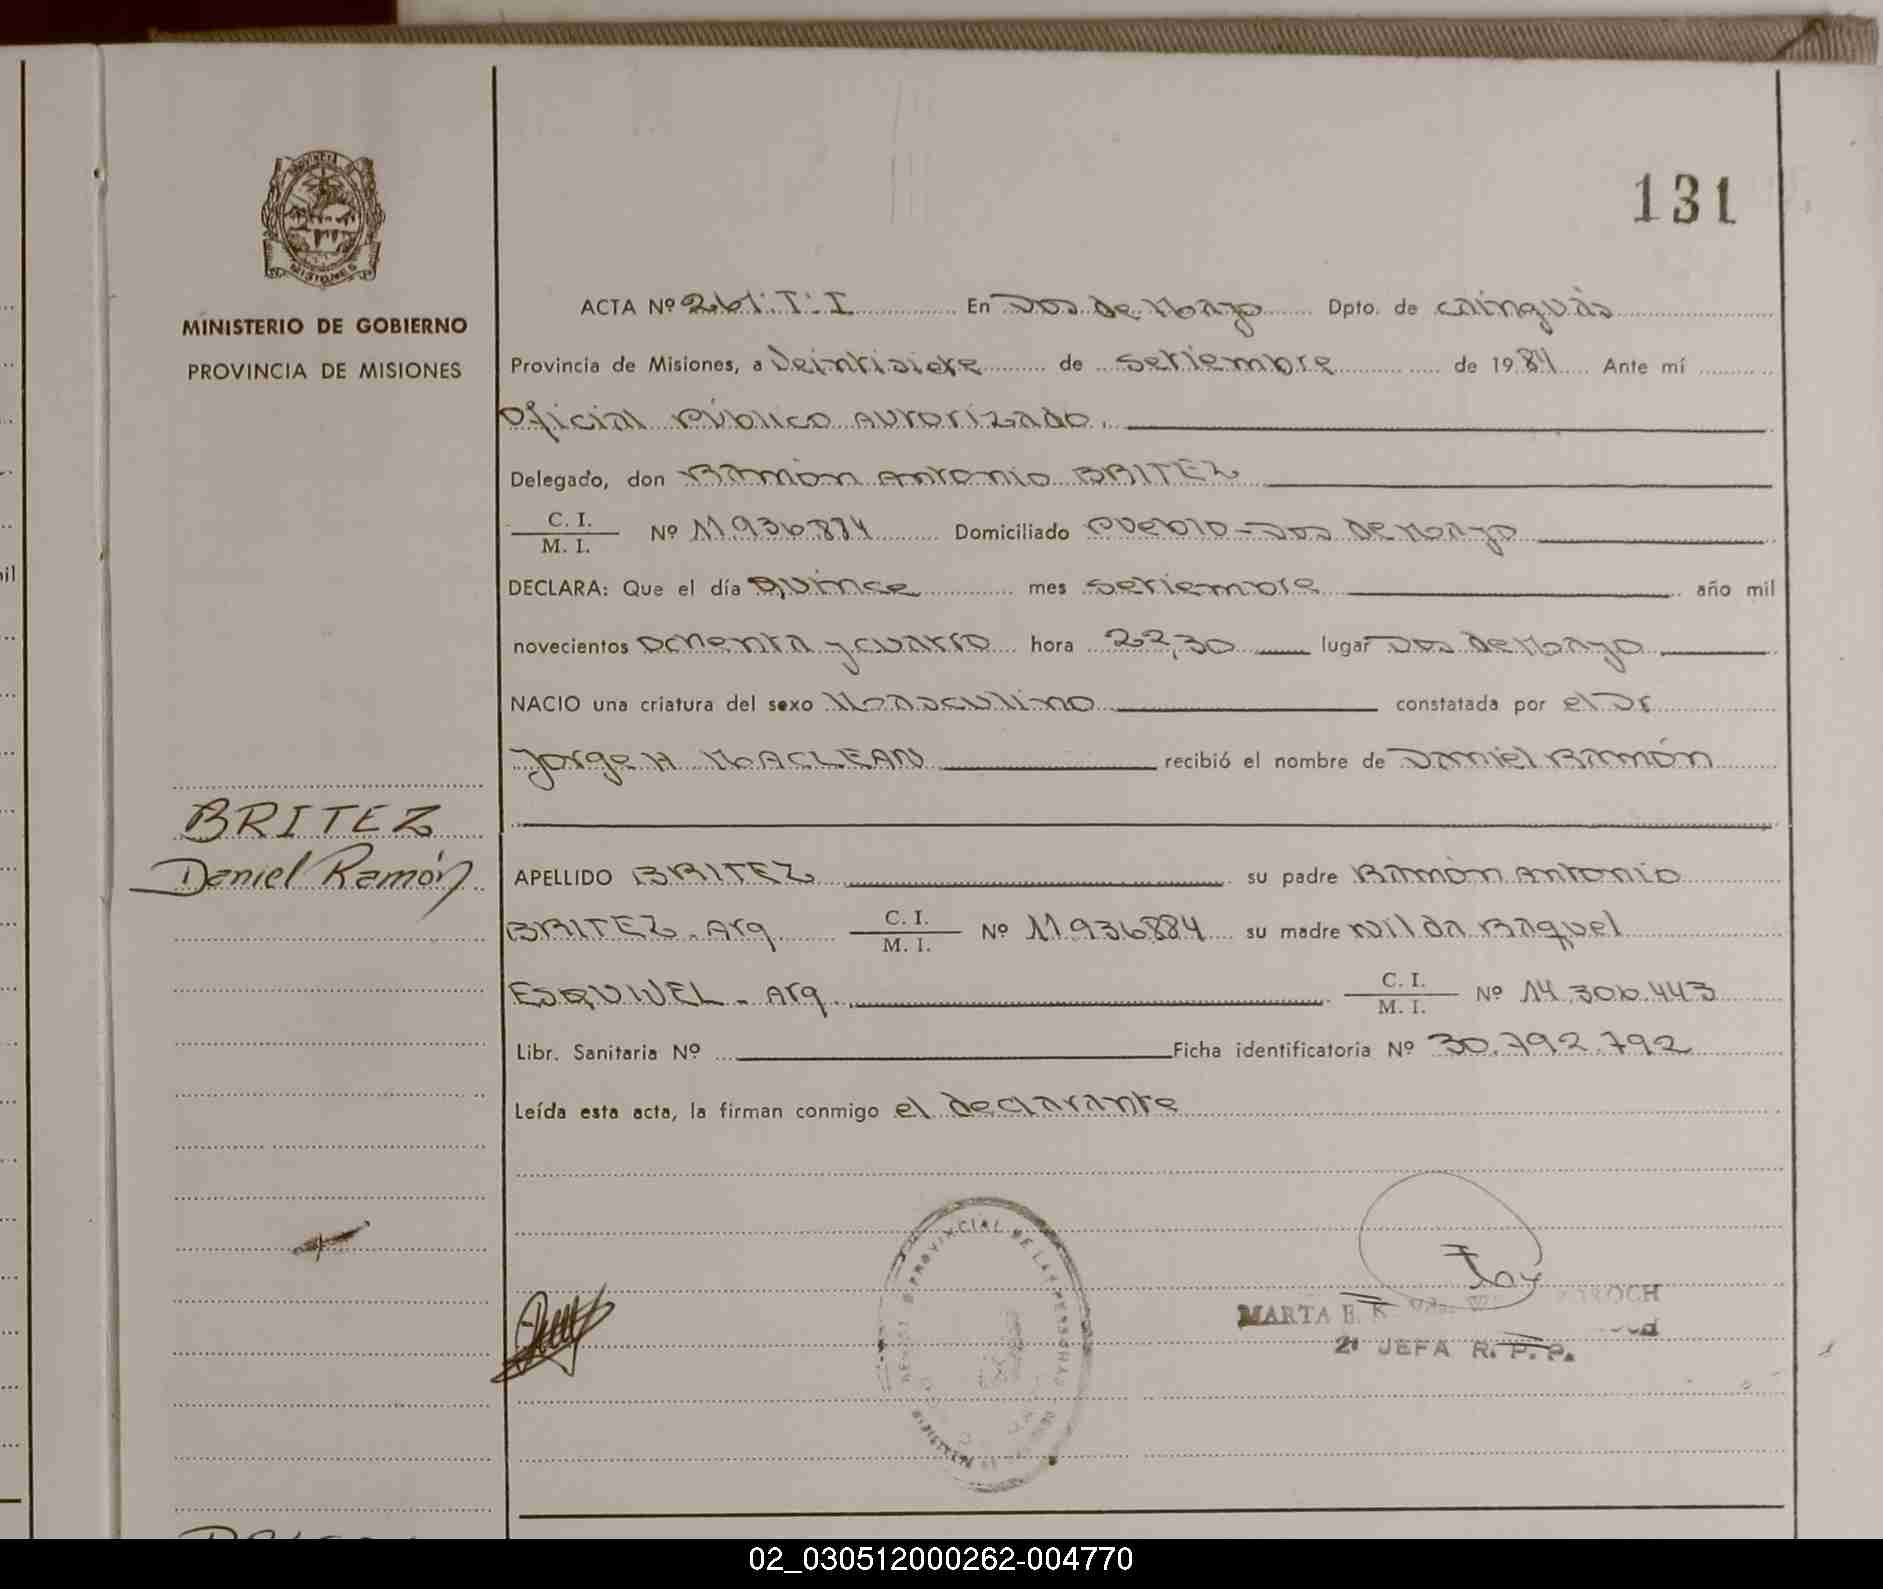 131
MISIONES
MINISTERIO DE GOBIERNO
PROVINCIA DE MISIONES
BRITEZ
Daniel Ramón
ACTA Nº 261. T. I En Dos de Mayo Dpto. de Cainguás
Provincia de Misiones, a Veintisiete de Setiembre de 1984 Ante mí
Oficial Público Autorizado.
Delegado, don Ramón Antonio BRITEZ
C. I.
M. I. Nº 11.936.884 Domiciliado Pueblo - Dos de Mayo
DECLARA: Que el día Quince mes Setiembre año mil
novecientos ochenta y cuatro hora 22,30 lugar Dos de Mayo
NACIO una criatura del sexo Masculino constatada por el Dr
Jorge H MACLEAN recibió el nombre de Daniel Ramón
APELLIDO BRITEZ su padre Ramón Antonio
BRITEZ - Arg C. I.
M. I. Nº 11.936.884 su madre Nilda Raquel
ESQUIVEL - Arg. C. I.
M. I. Nº 14.306.443
Libr. Sanitaria Nº Ficha identificatoria Nº 30.792.792
Leída esta acta, la firman conmigo el declarante
PROVINCIAL DE LAS PERSONAS
MARTA E. K
2º JEFA R. P. P.
02_030512000262-004770